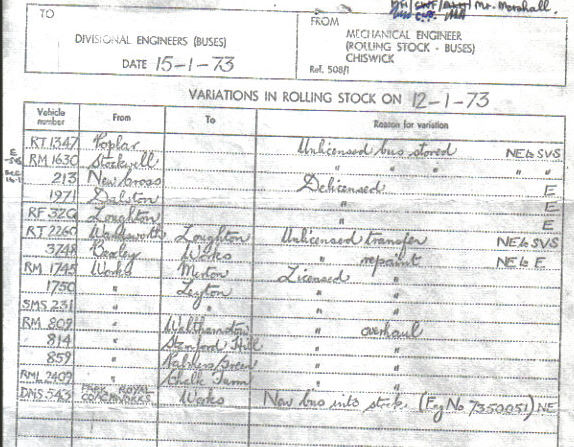 Mr. Marshall.
TO
FROM
DIVISIONAL ENGINEERS (BUSES)
DATE 15-1-73
MECHANICAL ENGINEER
(ROLLING STOCK - BUSES)
CHISWICK
Ref. 508/1
VARIATIONS IN ROLLING STOCK ON 12-1-73
Vehicle number From To Reason for variation
RT 1347 Poplar Unlicensed bus stored NE to SVS
RM 1630 Stockwell " " " " "
213 New Cross Delicensed E
1971 Dalston " E
RF 320 Loughton " E
RT 2260 Wandsworth Loughton Unlicensed transfer NE to SVS
3748 Bexley Works " repaint NE to E
RM 1748 Works Merton Licensed "
1750 " Leyton " "
SMS 231 " " " "
RM 809 " Walthamstow " overhaul
814 " Stamford Hill " "
859 " Palmers Green " "
RML 2409 " Chalk Farm " "
DMS 543 PARK ROYAL COACHWORKS Works New bus into stock. (Eng No 7350051) NE